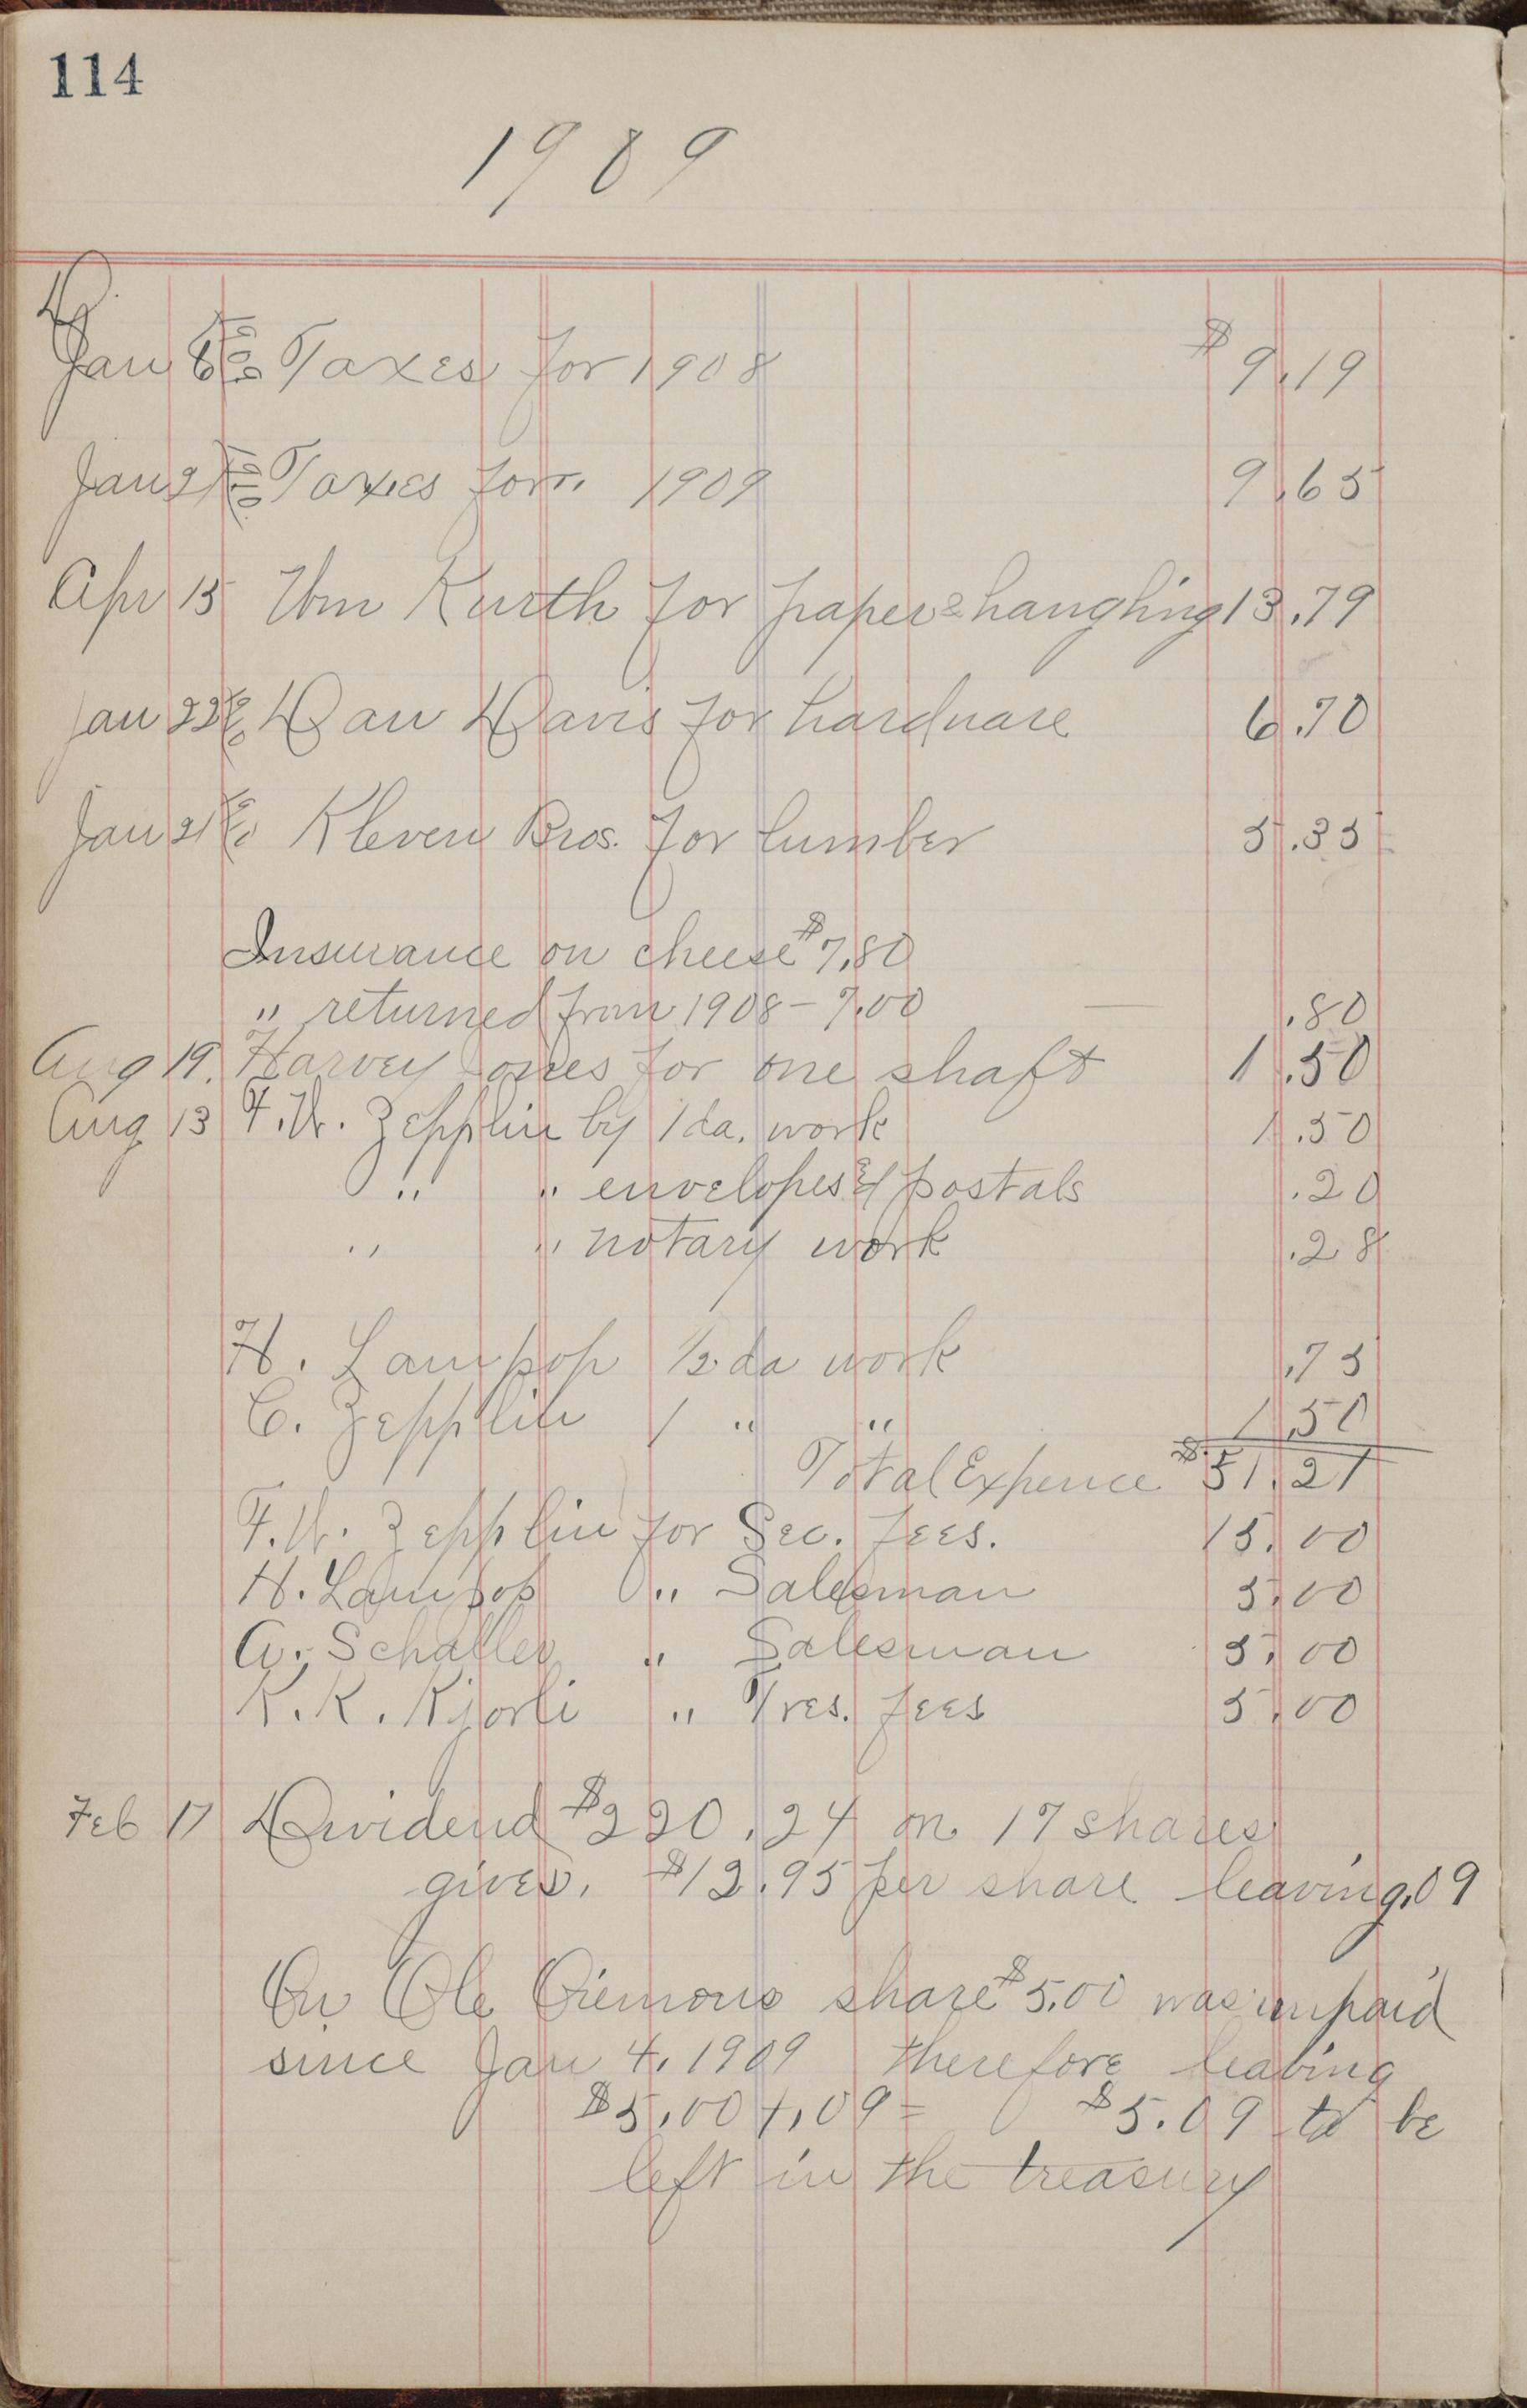 114
1909
Jan 6 1909 Taxes for 1908 $9.19
Jan 21 1910 Taxes for 1909 9.65
Apr 15 Wm Kurth for paper & hanghing 13.79
Jan 22 Dan Davis for hardware 6.70
Jan 21 Kleven Bros. for lumber 5.35
Insurance on cheese $7.80
" returned from 1908 - 7.00 — .80
Aug 19. Harvey Jones for one shaft 1.50
Aug 13 F.W. Zepplin by 1 da. work 1.50
" " envelopes & postals .20
" " notary work .28
H. Lampop 1/2 da work .75
C. Zepplin 1 " " 1.50
Total Expence $51.21
F.W. Zepplin for Sec. fees. 15.00
H. Lampop " Salesman 5.00
A. Schaller " Salesman 5.00
K.K. Kjorli " Tres. fees 5.00
Feb 17 Dividend $220.24 on 17 shares
gives. $12.95 per share leaving .09
On Ole share $5.00 was unpaid
since Jan 4, 1909 therefore leaving
$5.00 + .09 = $5.09 to be
left in the treasury